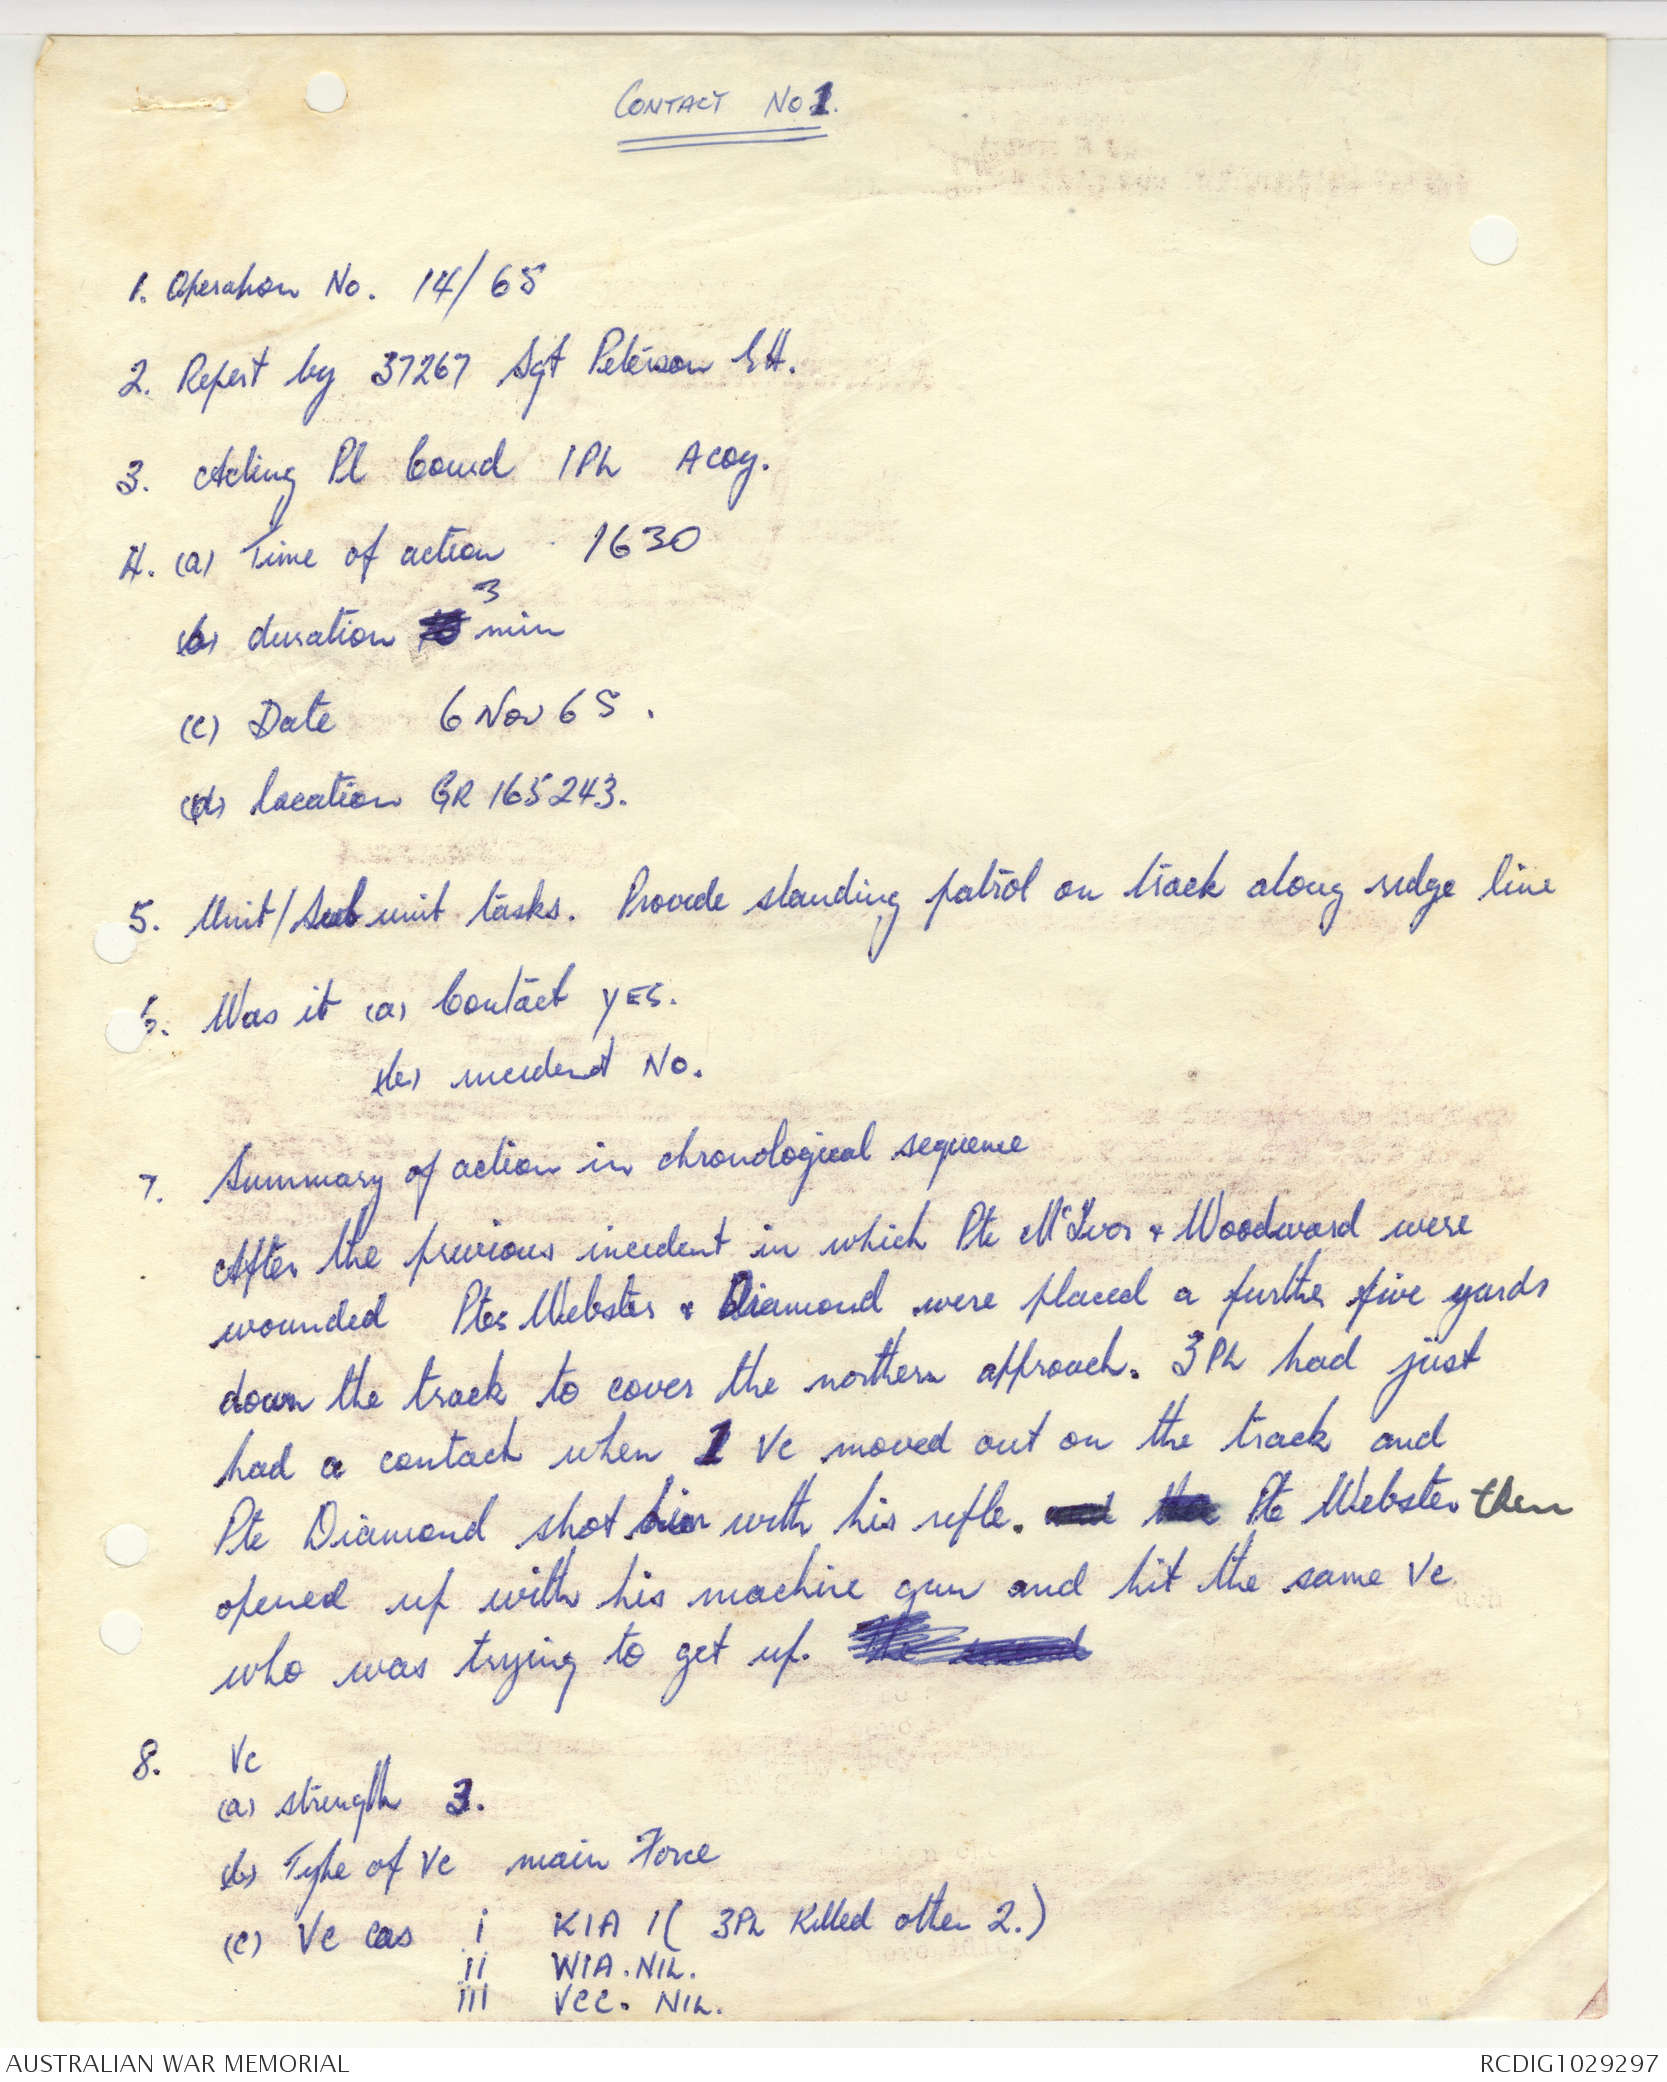 CONTACT NO 1.
1. Operation No. 14/65
2. Report by 37267 Sgt Peterson
3. Acting Pl Comd 1PL A Coy.
4. (a) Time of action 1630
3
(b) duration min
(c) Date 6 Nov 65.
(d) location GR 165243.
5. Unit/Sub unit tasks. Provide standing patrol on track along ridge line
6. Was it (a) Contact YES.
(b) incident No.
7. Summary of action in chronological sequence
After the previous incident in which Pte McIvor & Woodward were
wounded Ptes Webster & Diamond were placed a further five yards
down the track to cover the northern approach. 3PL had just
had a contact when 1 VC moved out on the track and
Pte Diamond shot him with his rifle. Pte Webster then
opened up with his machine gun and hit the same VC
who was trying to get up.
8. VC
(a) strength 3.
(b) Type of VC main Force
(c) VC cas i KIA 1 ( 3PL Killed other 2.)
ii WIA. NIL.
iii VCC. NIL.
AUSTRALIAN WAR MEMORIAL
RCDIG1029297